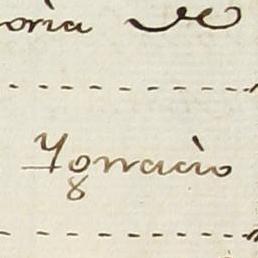 oria de
Ygnacio